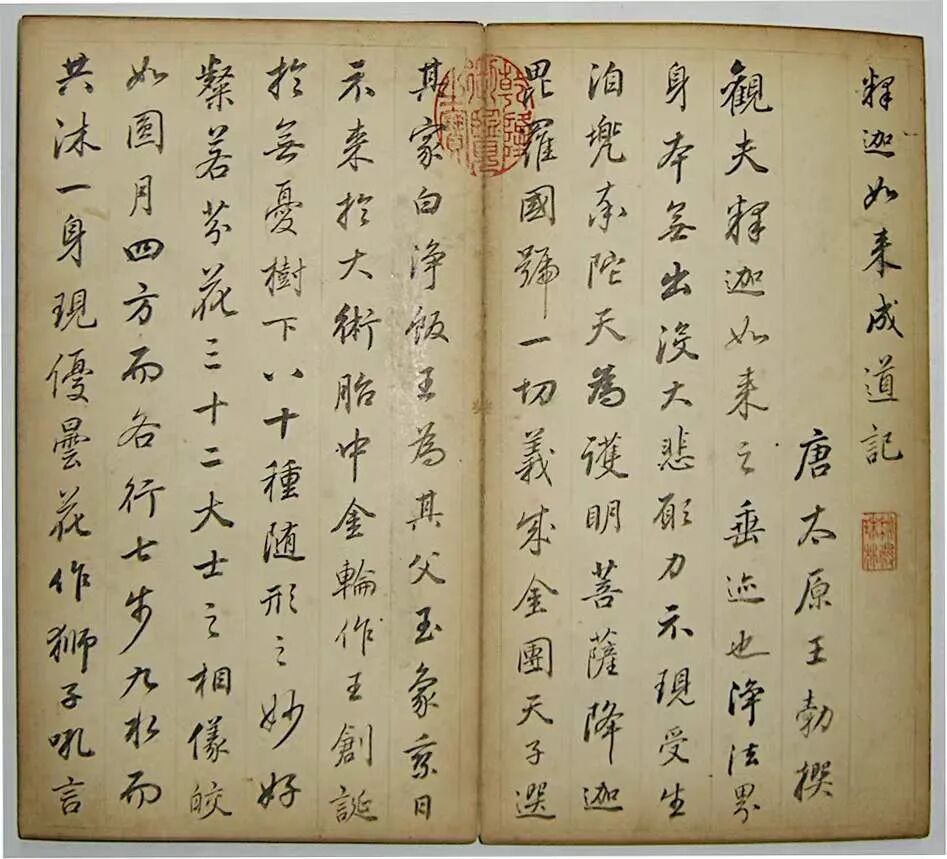 釋迦如来成道記
秘殿珠林
唐太原王勃撰
觀夫釋迦如来之垂迹也淨法界
身本無出沒大悲願力示現受生
洎兠率陀天為護明菩薩降迦
毘羅國號一切義成金團天子選
乾隆御覽之寶
其家白淨飯王為其父玉象乘日
示来於大術胎中金輪作王創誕
於無憂樹下八十種随形之妙好
粲若芬花三十二大士之相儀皎
如圓月四方而各行七步九水而
共沐一身現優曇花作獅子吼言